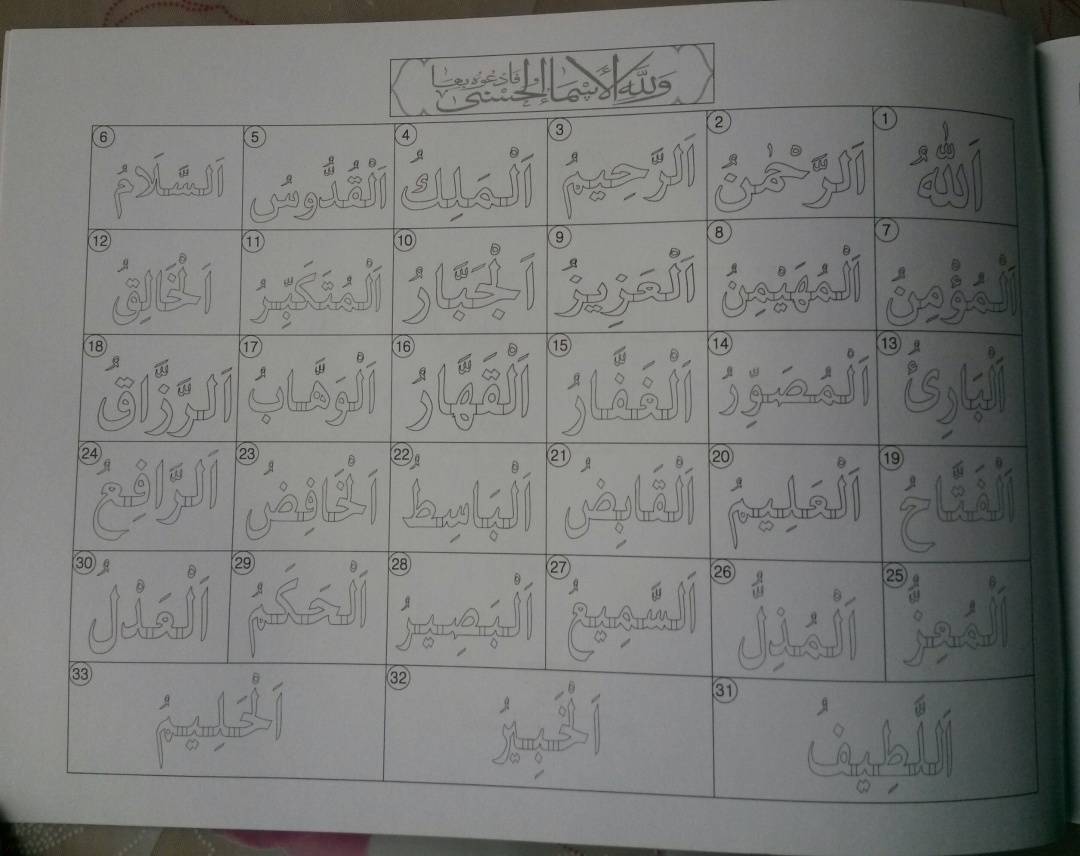 وَلِلَّهِ الْأَسْمَاءُ الْحُسْنَى فَادْعُوهُ بِهَا
1 اَللّٰهُ 2 اَلرَّحْمٰنُ 3 اَلرَّحِيمُ 4 اَلْمَلِكُ 5 اَلْقُدُّوسُ 6 اَلسَّلَامُ
7 اَلْمُؤْمِنُ 8 اَلْمُهَيْمِنُ 9 اَلْعَزِيزُ 10 اَلْجَبَّارُ 11 اَلْمُتَكَبِّرُ 12 اَلْخَالِقُ
13 اَلْبَارِئُ 14 اَلْمُصَوِّرُ 15 اَلْغَفَّارُ 16 اَلْقَهَّارُ 17 اَلْوَهَّابُ 18 اَلرَّزَّاقُ
19 اَلْفَتَّاحُ 20 اَلْعَلِيمُ 21 اَلْقَابِضُ 22 اَلْبَاسِطُ 23 اَلْخَافِضُ 24 اَلرَّافِعُ
25 اَلْمُعِزُّ 26 اَلْمُذِلُّ 27 اَلسَّمِيعُ 28 اَلْبَصِيرُ 29 اَلْحَكَمُ 30 اَلْعَدْلُ
31 اَللَّطِيفُ 32 اَلْخَبِيرُ 33 اَلْحَلِيمُ